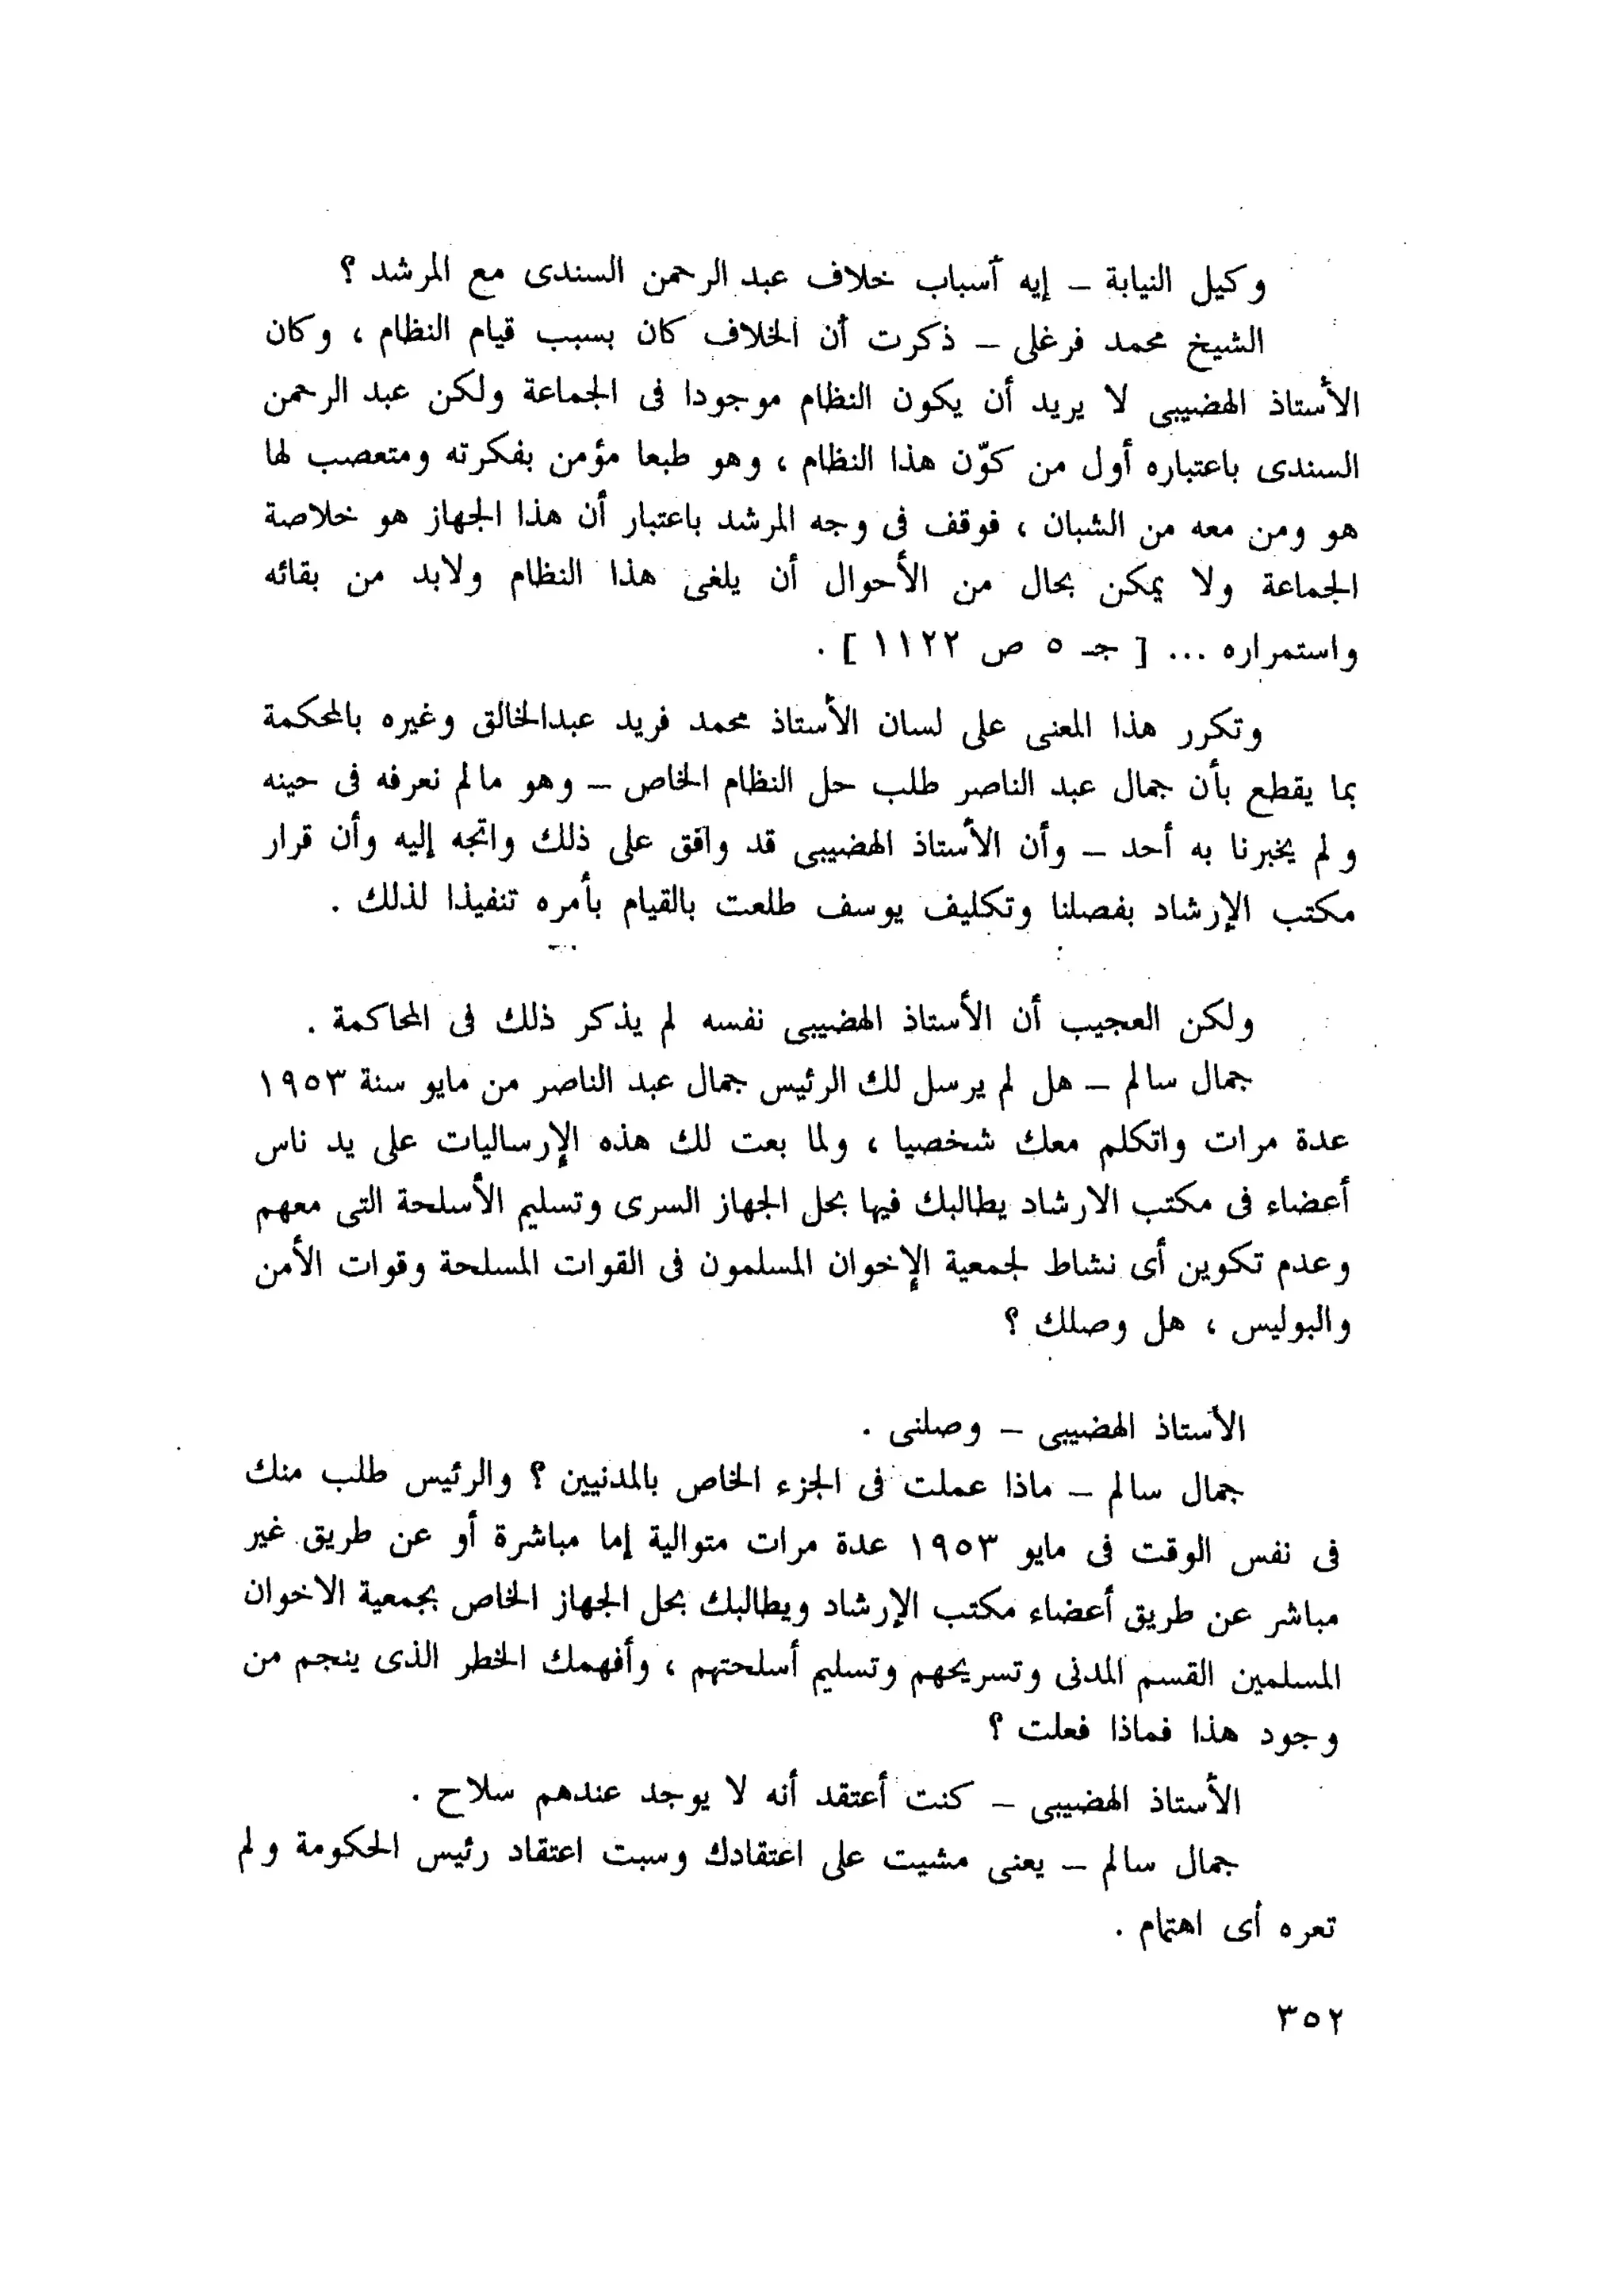 وكيل النيابة – إيه أسباب خلاف عبد الرحمن السندى مع المرشد ؟
الشيخ محمد فرغلى – ذكرت أن الخلاف كان بسبب قيام النظام ، وكان
الأستاذ الهضيبى لا يريد أن يكون النظام موجودا فى الجماعة ولكن عبد الرحمن
السندى باعتباره أول من كوّن هذا النظام ، وهو طبعا مؤمن بفكرته ومتعصب لها
هو ومن معه من الشبان ، فوقف فى وجه المرشد باعتبار أن هذا الجهاز هو خلاصة
الجماعة ولا يمكن بحال من الأحوال أن يلغى هذا النظام ولابد من بقائه
واستمراره ... [ جـ ٥ ص ١١٢٢ ] .
وتكرر هذا المعنى على لسان الأستاذ محمد فريد عبدالخالق وغيره بالمحكمة
بما يقطع بأن جمال عبد الناصر طلب حل النظام الخاص – وهو مالم نعرفه فى حينه
و لم يخبرنا به أحد – وأن الأستاذ الهضيبى قد وافق على ذلك واتجه إليه وأن قرار
مكتب الإرشاد بفصلنا وتكليف يوسف طلعت بالقيام بأمره تنفيذا لذلك .
ولكن العجيب أن الأستاذ الهضيبى نفسه لم يذكر ذلك فى المحاكمة .
جمال سالم – هل لم يرسل لك الرئيس جمال عبد الناصر من مايو سنة ١٩٥٣
عدة مرات واتكلم معك شخصيا ، ولما بعت لك هذه الإرساليات على يد ناس
أعضاء فى مكتب الارشاد يطالبك فيها بحل الجهاز السرى وتسليم الأسلحة التى معهم
وعدم تكوين أى نشاط لجمعية الإخوان المسلمون فى القوات المسلحة وقوات الأمن
والبوليس ، هل وصلك ؟
الأستاذ الهضيبى – وصلنى .
جمال سالم – ماذا عملت فى الجزء الخاص بالمدنيين ؟ والرئيس طلب منك
فى نفس الوقت فى مايو ١٩٥٣ عدة مرات متوالية إما مباشرة أو عن طريق غير
مباشر عن طريق أعضاء مكتب الإرشاد ويطالبك بحل الجهاز الخاص بجمعية الاخوان
المسلمين القسم المدنى وتسريحهم وتسليم أسلحتهم ، وأفهمك الخطر الذى ينجم من
وجود هذا فماذا فعلت ؟
الأستاذ الهضيبى – كنت أعتقد أنه لا يوجد عندهم سلاح .
جمال سالم – يعنى مشيت على اعتقادك وسبت اعتقاد رئيس الحكومة و لم
تعره أى اهتمام .
٣٥٢